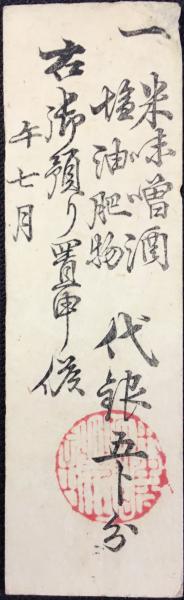 一 米味噌酒
塩油肥物 代銀五卜分
右御預り置申候
午七月